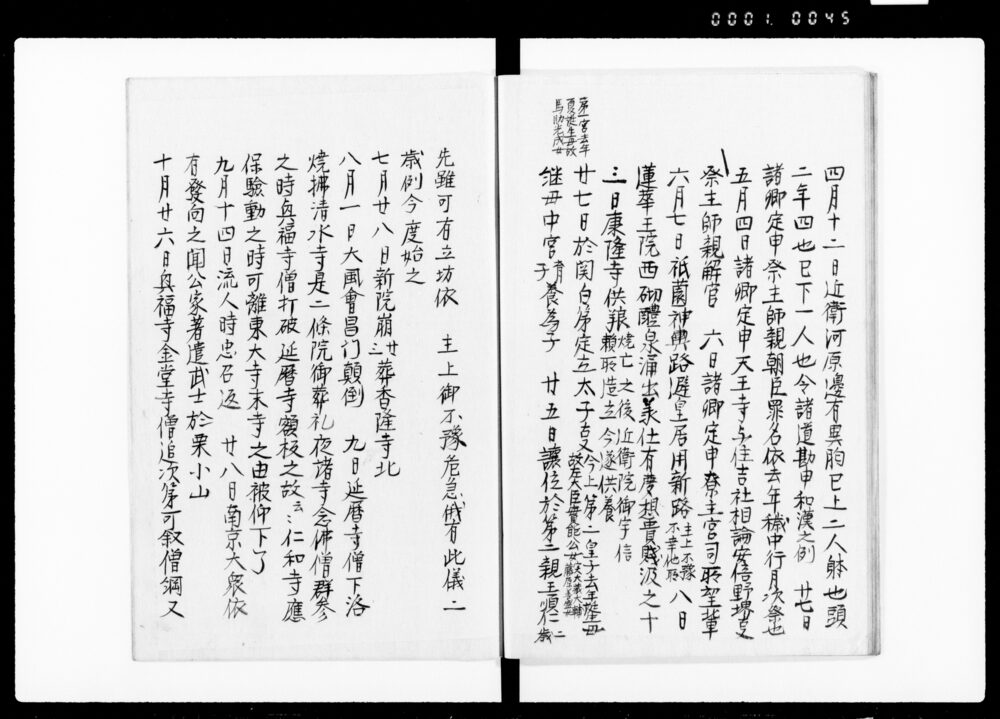 0001.0045
四月十二日近衛河原邊有異胸已上二人躰也頭
二年四也已下一人也令諸道勘申和漢之例 廿七日
諸卿定申祭主師親朝臣罪名依去年穢中行月次祭也
五月四日諸卿定申天王寺与住吉社相論安倍野堺事
祭主師親解官 六日諸卿定申祭主宮司所望輩
六月七日祇薗神輿路避皇居用新路主上不豫不幸他所 八日
蓮華王院西砌醴泉涌出美仕有慶想貴賤汲之十
三日康隆寺供養燒亡之後近衛院御宇信頼所造立今遂供養
廿七日於関白第定立太子事今上第二皇子去年誕生母故左大臣實能公女
継母中宮育養為子 廿五日讓位於第二親王順仁二歳
第一宮去年夏誕生母故馬助光成女
先雖可有立坊依 主上御不豫危急俄有此儀二
歳例今度始之
七月廿八日新院崩廿三葬香隆寺北
八月一日大風會昌门顛倒 九日延暦寺僧下洛
燒拂清水寺是二條院御葬礼夜諸寺念佛僧群参
之時興福寺僧打破延暦寺額板之故云々仁和寺應
保驗動之時可離東大寺末寺之由被仰下了
九月十四日流人時忠召返 廿八日南京大衆依
有發向之聞公家著遣武士於栗小山
十月廿六日興福寺金堂寺僧追次第可叙僧綱又